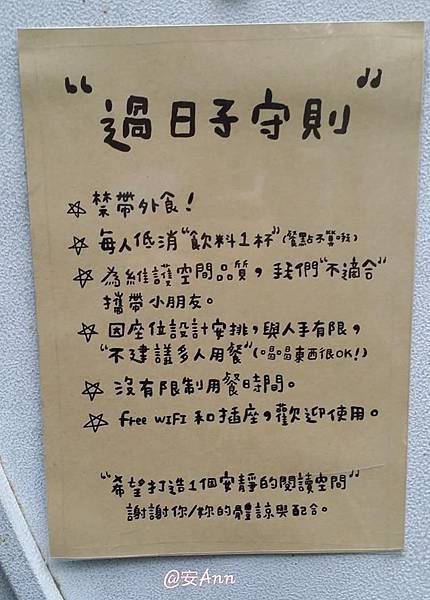 “過日子守則”
☆ 禁帶外食！
☆ 每人低消“飲料1杯”(餐點不算啦)
☆ 為維護空間品質，我們“不適合”
攜帶小朋友。
☆ 因座位設計安排，與人手有限，
“不建議多人用餐”(喝喝東西很OK!)
☆ 沒有限制用餐時間。
☆ free WIFI 和插座，歡迎使用。
“希望打造1個安靜的閱讀空間”
謝謝你/妳的體諒與配合。
@安Ann